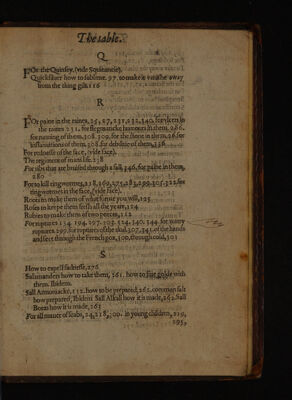 The table.
Q
FOr the Quinsey. (vide Squinancie).
Quicksilver how to sublime. 97. to make it away
from the thing gilt. 116
R
FOr paine in the raines, 25, 67, 231, 232, 340. for
the raines 231. for flegmaticke humours in them, 286.
for running of them, 308, 309. for the stone in them, 18. for
inflamations of them, 308. for debilitie of them, 238
For rednesse of the face, (vide face).
The regiment of mans life. 238
For ribs that are bruised through a fall, 346, for paine in them,
280
For to kill ringwormes, 218, 269, 275, 283, 299, 305, 322. for
ringwormes in the face, (vide face).
Roots to make them of what sent you will, 125
Roses to keepe them fresh all the yeare, 124
Rubies to make them of two peeces, 112
For ruptures 134, 194, 297, 303, 324, 340, 344. for watry
ruptures. 299. for ruptures of the skul, 307, 341. of the hands
and feet through the French pox, 300, through cold, 301
S
How to expell sadnesse, 276
Salamanders how to take them, 361. how to fine golde with
them. Ibidem.
Sall Armoniacke, 112. how to be prepared, 262. common salt
how prepared, Ibidem. Sall Alcali how it is made, 262. Sall
Borax how it is made, 263
For all maner of scabs, 24, 218, 300. in young children, 219,
295,